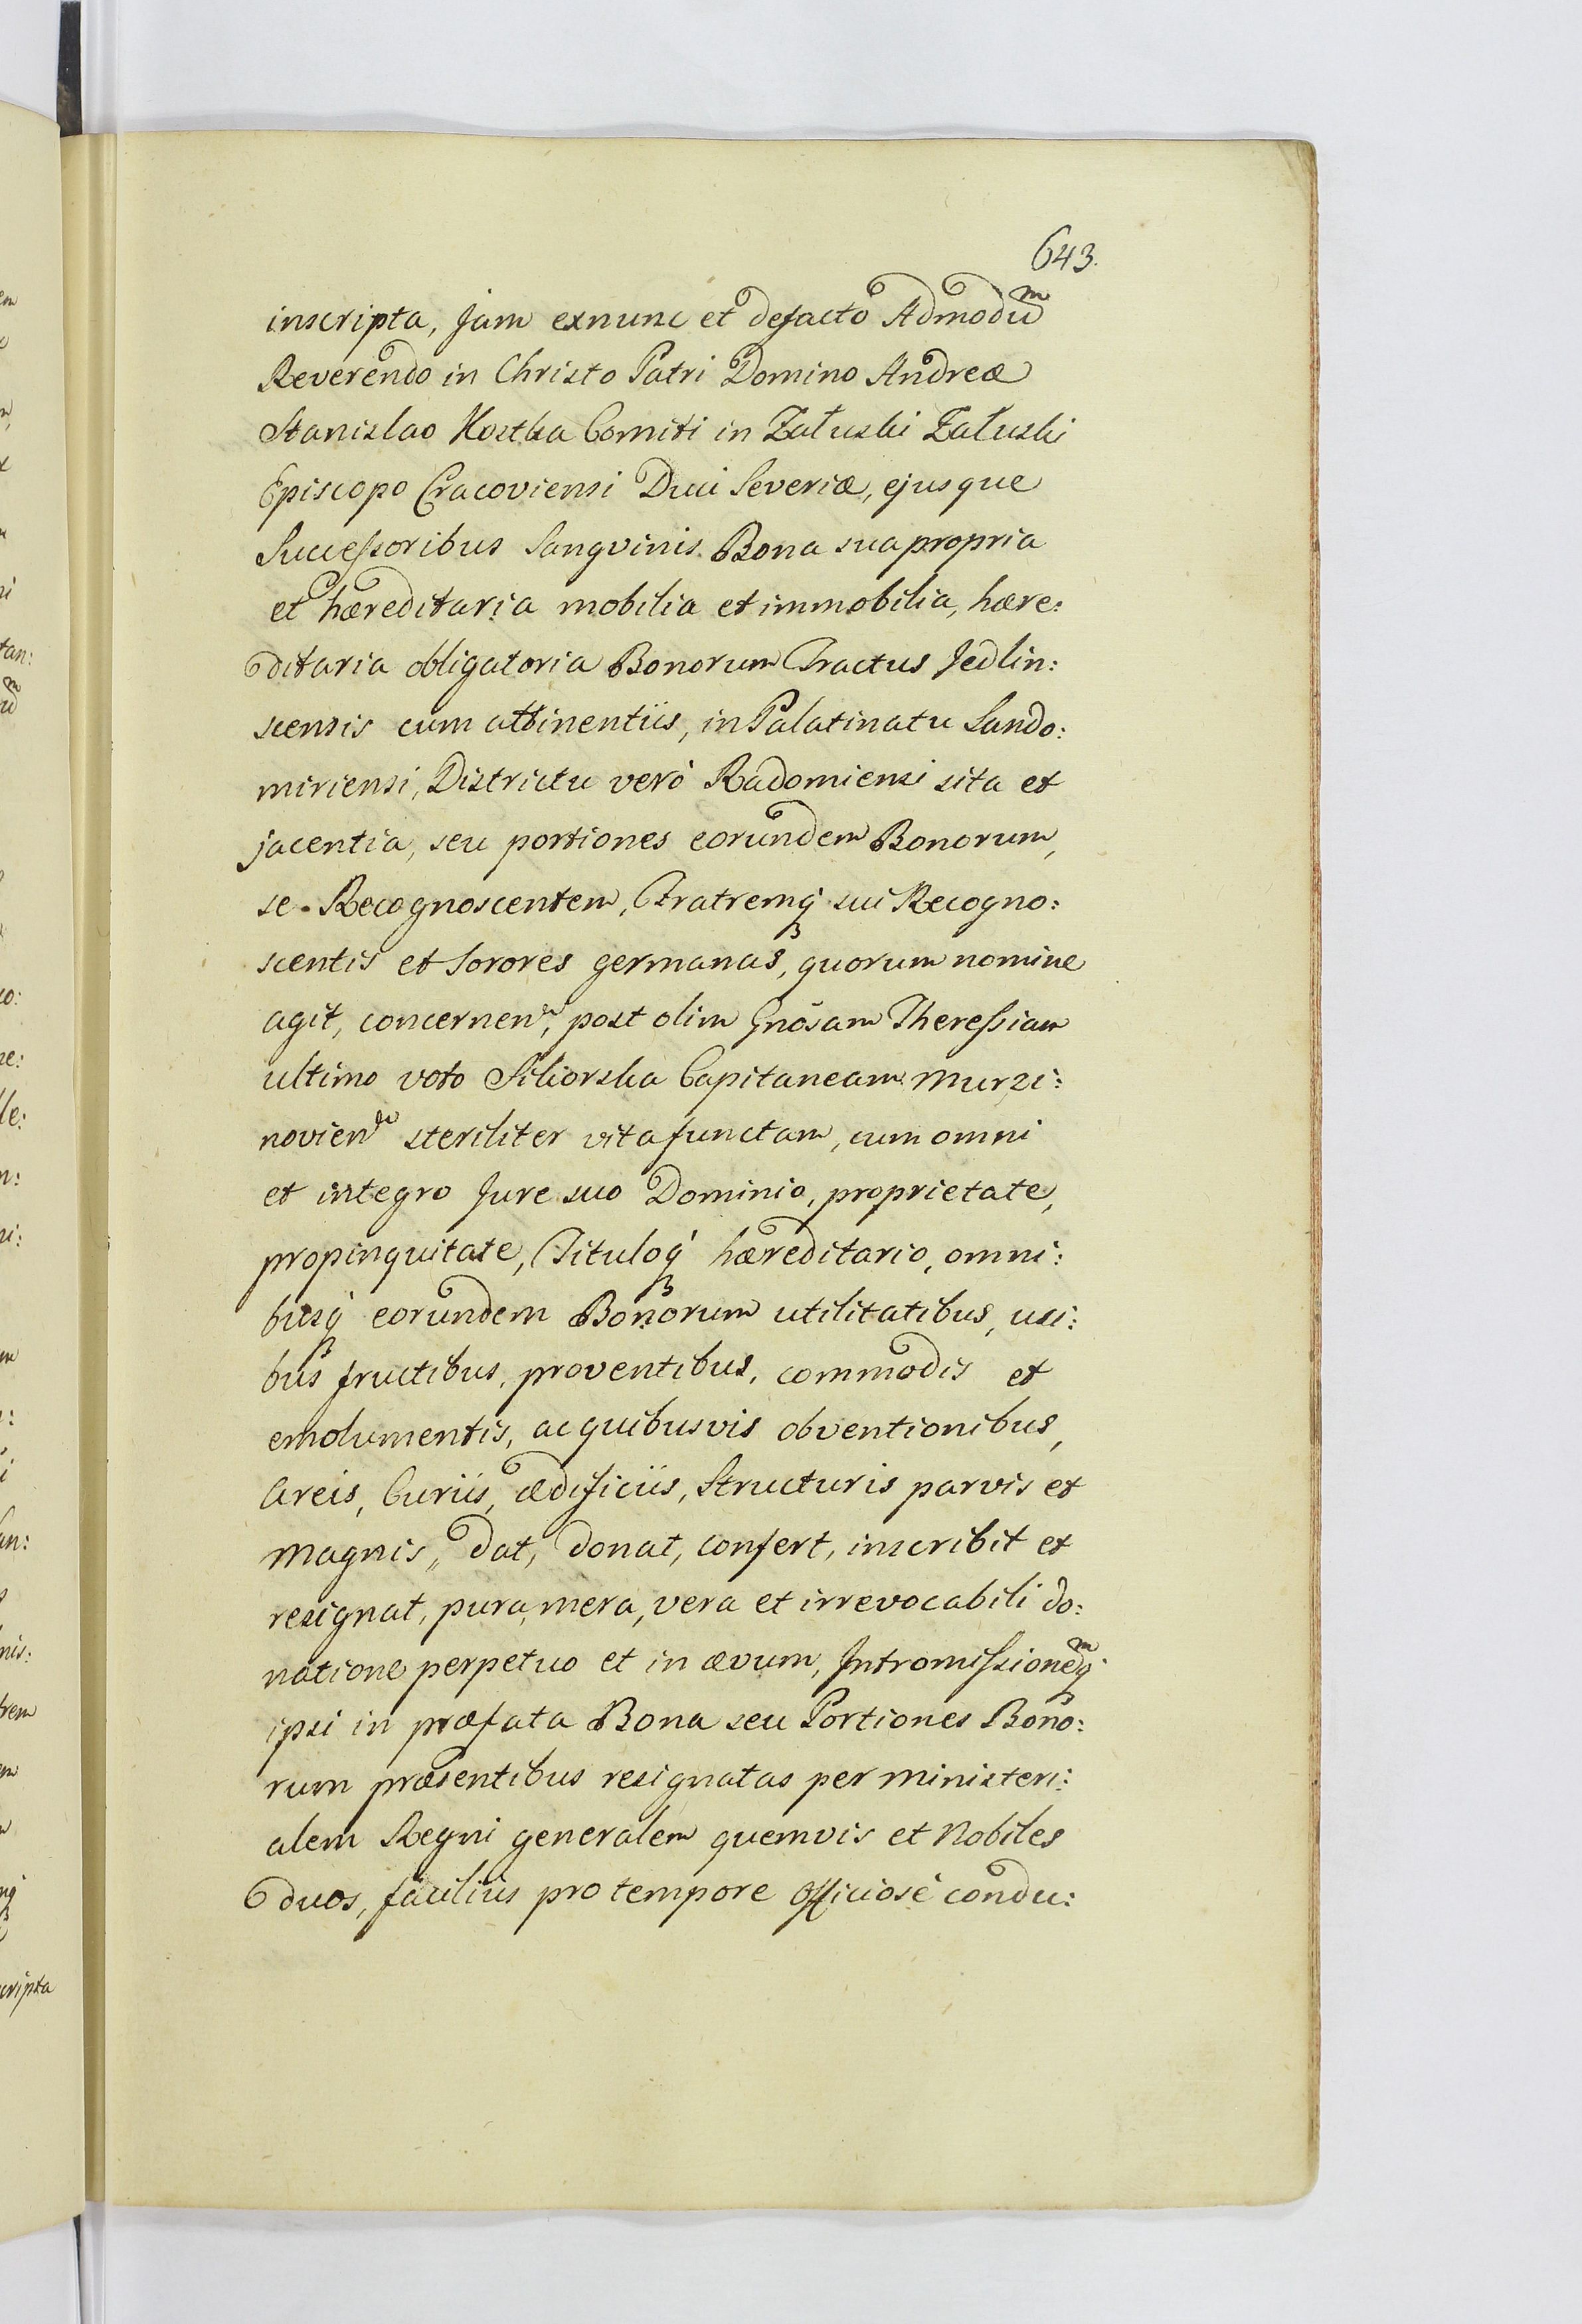 643.
inscripta, Jam exnunc et defacto Admodu͠m
Reverendo in Christo Patri Domino Andreæ
Stanislao Kostka Comiti in Załuski Załuski
Episcopo Cracoviensi Duci Severiæ, ejusque
Successoribus Sangvinis Bona sua propria
et hæreditaria mobilia et immobilia, hære:
ditaria obligatoria Bonorum Tractus Jedlin:
scensis cum attinentiis, in Palatinatu Sando:
miriensi, Districtu verò Radomiensi sita et
jacentia, seu portiones eorundem Bonorum,
se Recognoscentem, Fratremq́ sui Recogno:
scentis et Sorores germanas, quorum nomine
agit, concernen, post olim Gnosam Theressiam
ultimo voto Sikorska Capitaneam Murzi:
novien steriliter vita functam, cum omni
et integro Jure suo Dominio, proprietate,
propinquitate, Tituloq́ hæreditario, omni:
busq́ eorundem Bonorum utilitatibus, usi:
bus fructibus, proventibus, commodis et
emolumentis, ac quibusvis obventionibus,
Areis, Curiis, ædificiis, Structuris parvis et
magnis,, dat, donat, confert, inscribit et
resignat, pura, mera, vera et irrevocabili do:
natione perpetuo et in ævum, Intromissionemq́
ipsi in præfata Bona seu Portiones Bono:
rum præsentibus resignatas per ministeri:
alem Regni generalem quemvis et Nobiles
duos, facilius pro tempore officiosè condu: